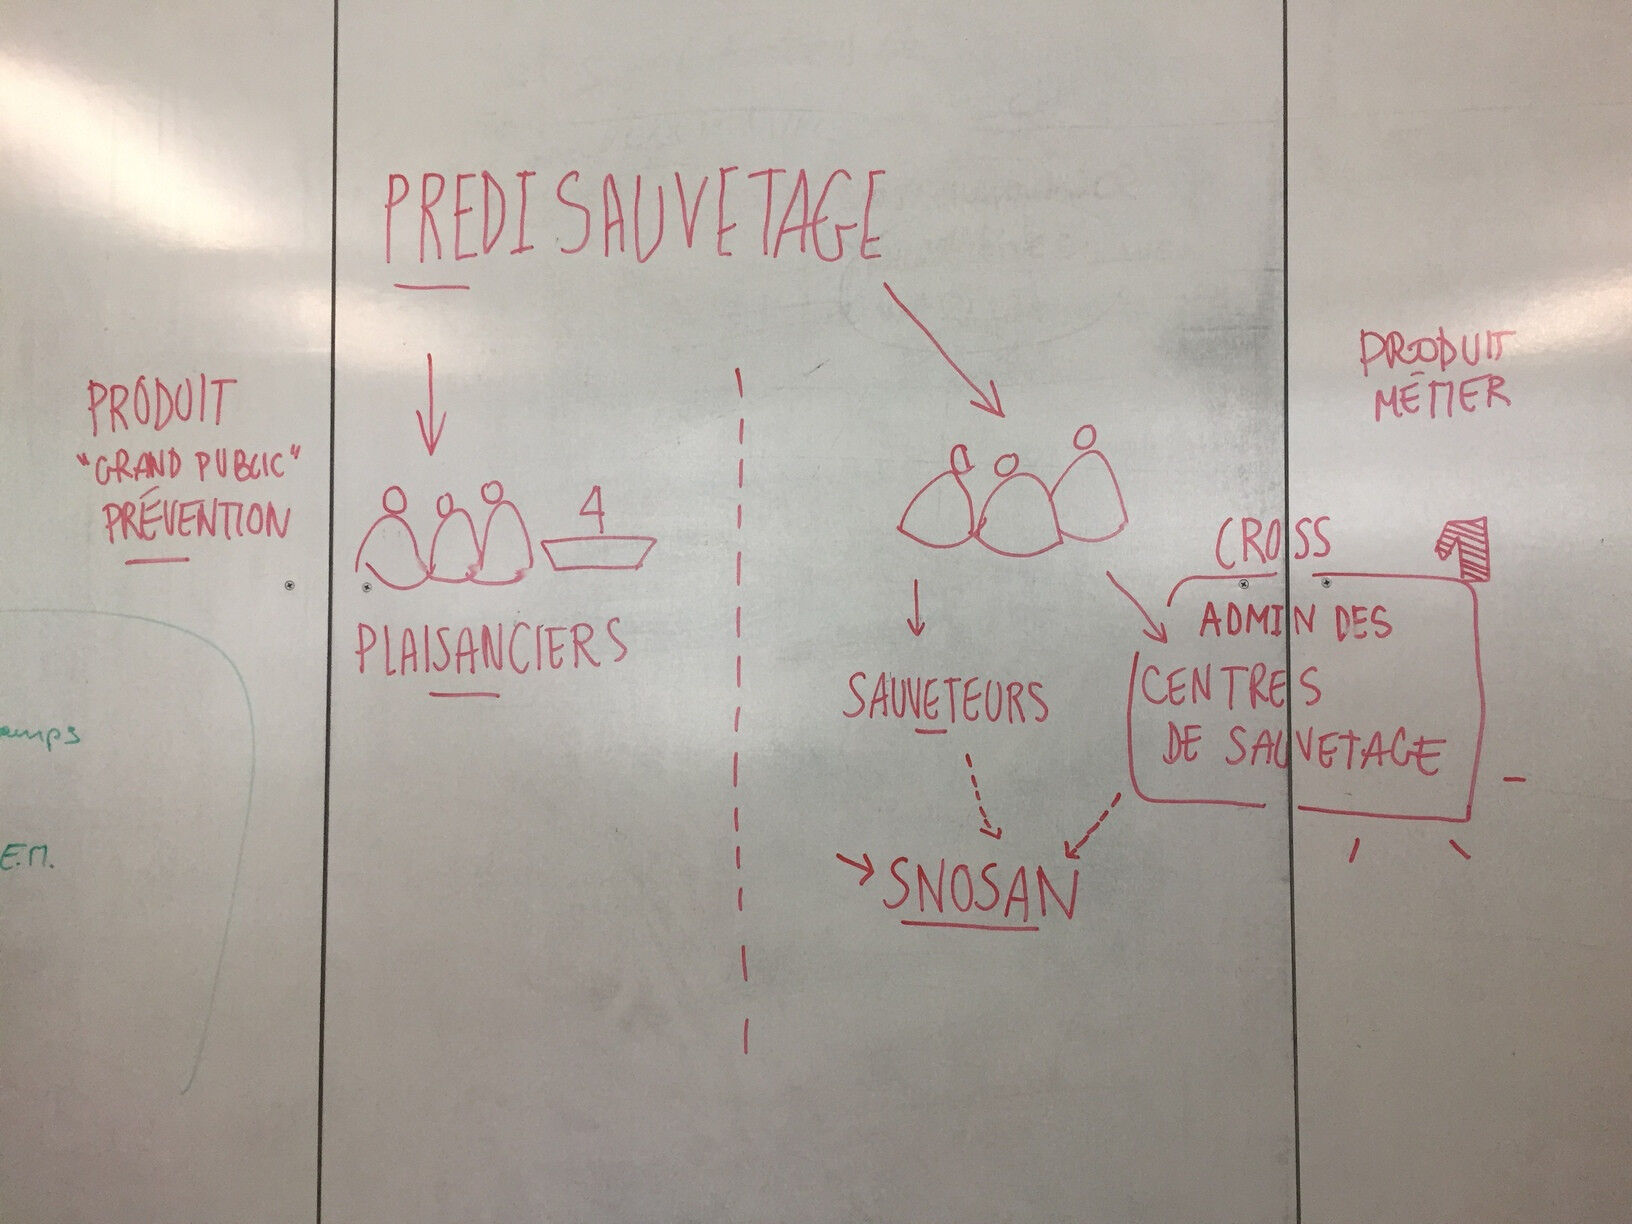 PREDISAUVETAGE
PRODUIT
"GRAND PUBLIC"
PRÉVENTION
PRODUIT
MÉTIER
4
PLAISANCIERS
CROSS
1
ADMIN DES
CENTRES
DE SAUVETAGE
SAUVETEURS
SNOSAN
E.M.